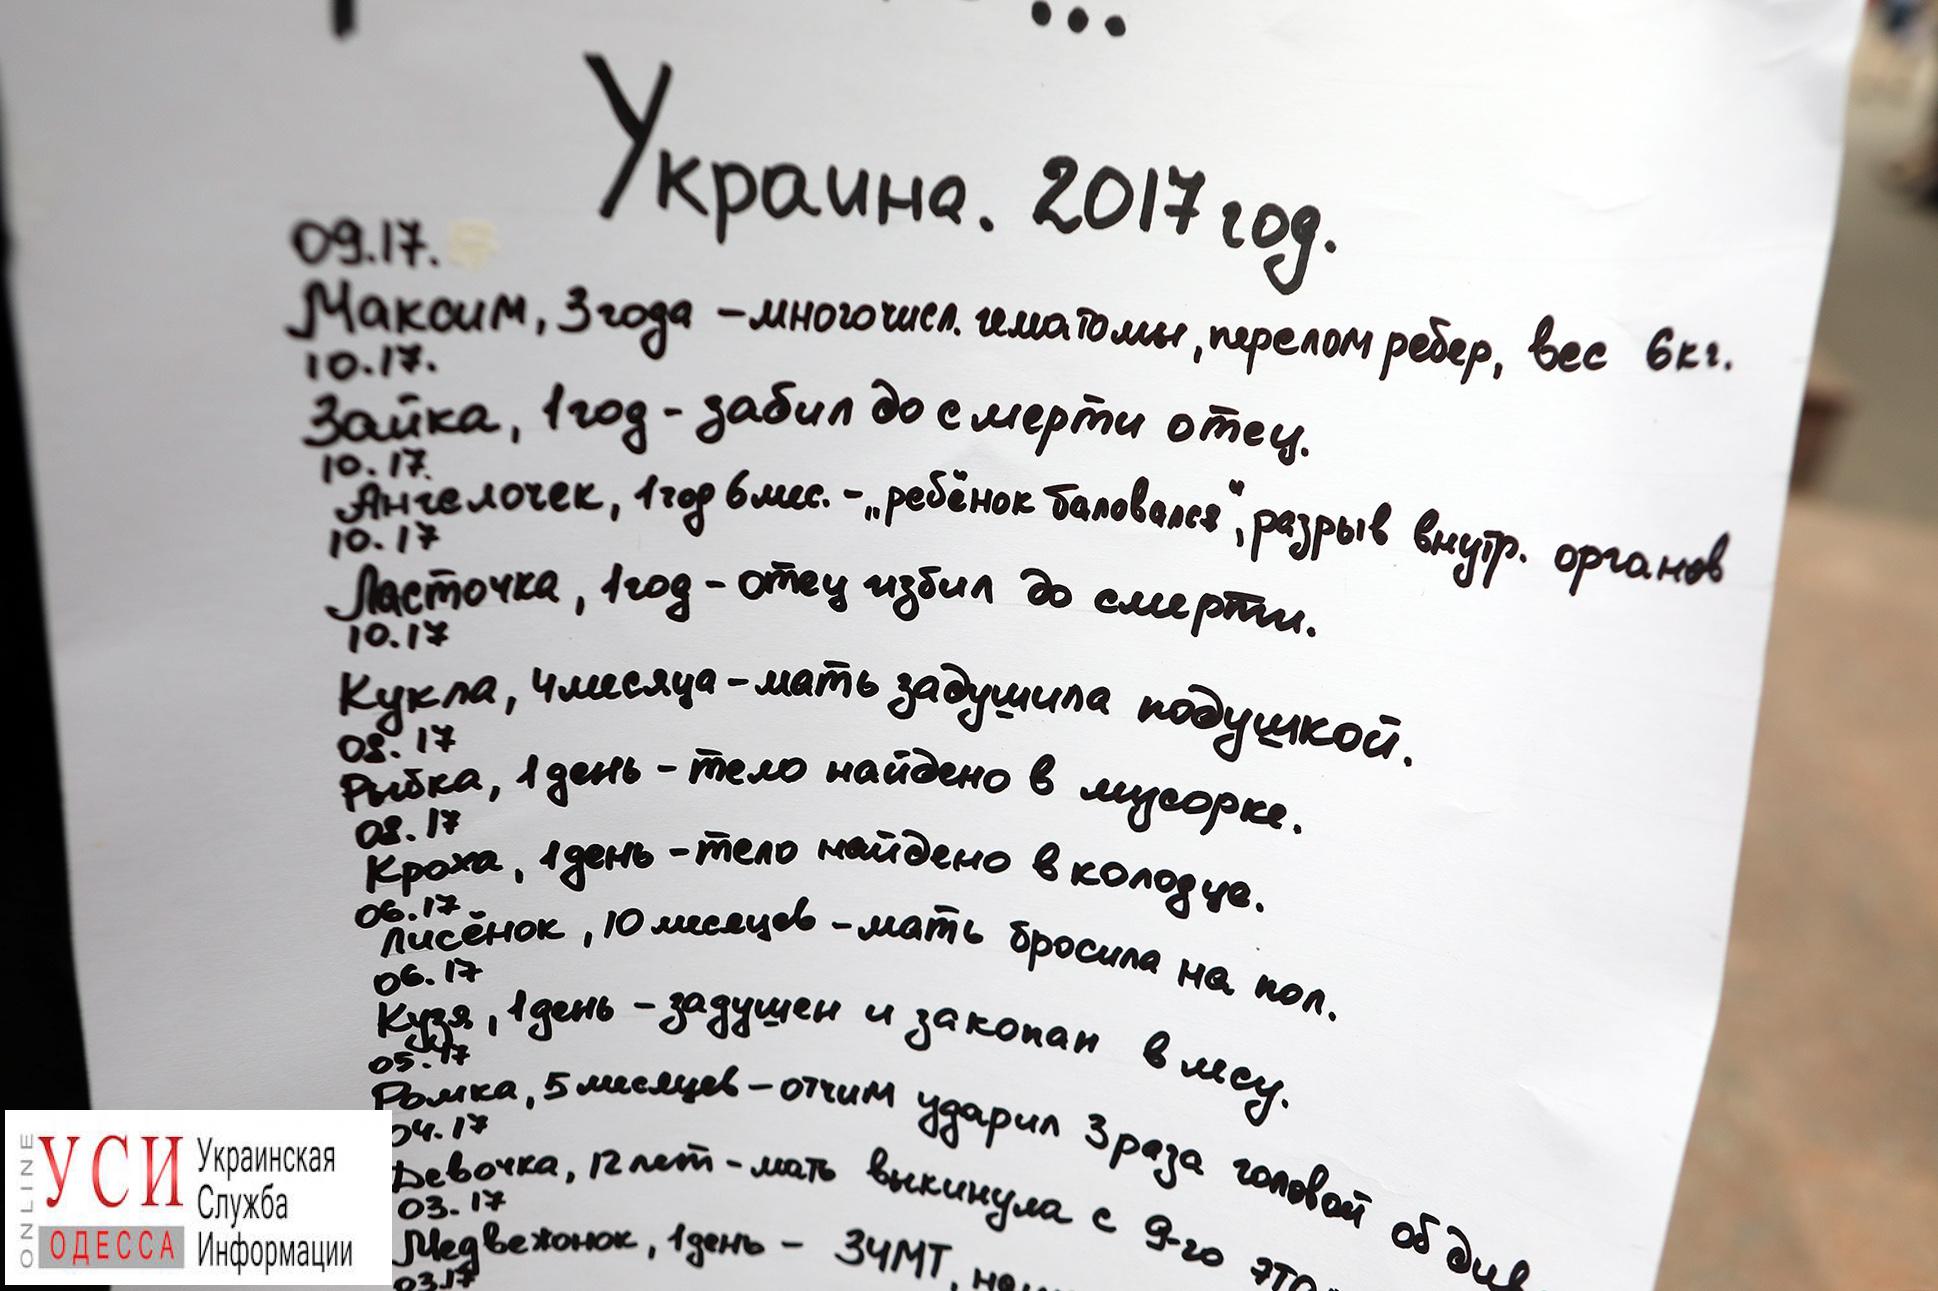 ...
Украина. 2017 год.
09.17.
Максим, 3 года - многочисл. гематомы, перелом ребер, вес 6кг.
10.17.
Зайка, 1 год - забил до смерти отец.
10.17.
Ангелочек, 1 год 6 мес. - „ребёнок баловался“, разрыв внутр. органов
10.17
Ласточка, 1 год - отец избил до смерти.
10.17
Кукла, 4 месяца - мать задушила подушкой.
08.17
Рыбка, 1 день - тело найдено в мусорке.
08.17
Кроха, 1 день - тело найдено в колодце.
06.17
Лисёнок, 10 месяцев - мать бросила на пол.
06.17
Кузя, 1 день - задушен и закопан в лесу.
05.17
Ромка, 5 месяцев - отчим ударил 3 раза головой об див
04.17
Девочка, 12 лет - мать выкинула с 9-го эта
03.17
Медвежонок, 1 день - ЗЧМТ,
03.17
ONLINE
УСИ
ОДЕССА
Украинская
Служба
Информации